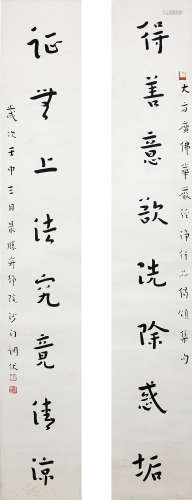 得善意欲洗除惑垢
大方廣佛華嚴經淨行品偈頌集句
証無上法究竟清涼
歲次壬申三月 沙門調伏